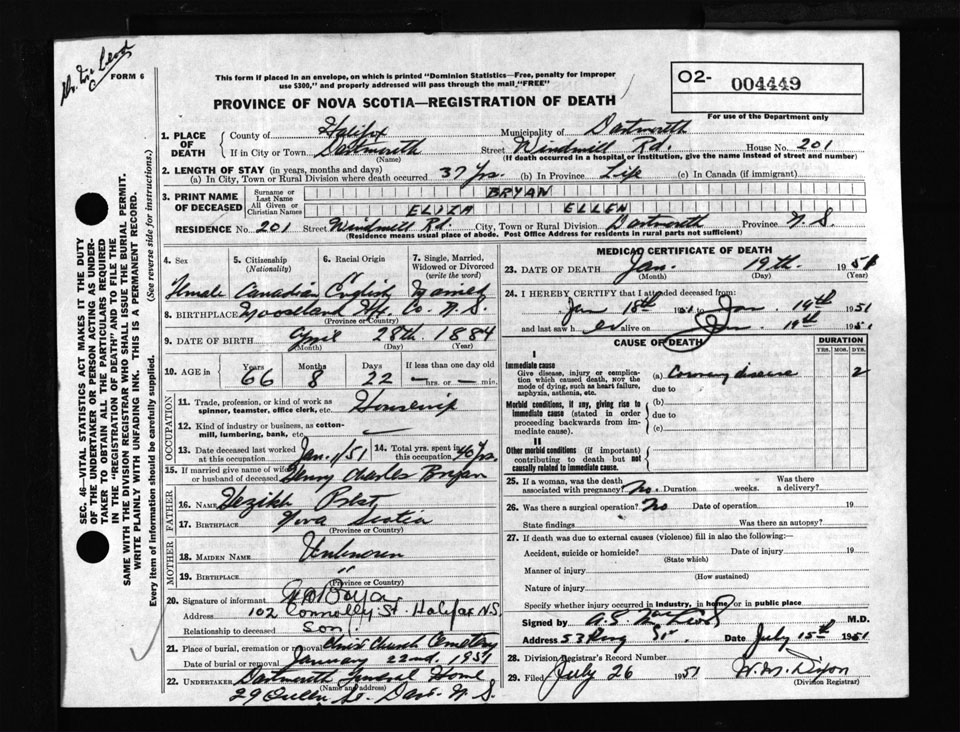 Dr. McLeod
FORM 6
This form if placed in an envelope, on which is printed "Dominion Statistics—Free, penalty for improper
use $300," and properly addressed will pass through the mail "FREE"
PROVINCE OF NOVA SCOTIA—REGISTRATION OF DEATH
O2- 004449
For use of the Department only
1. PLACE OF DEATH
County of Halifax Municipality of Dartmouth
If in City or Town Dartmouth Street Windmill Rd. House No. 201
(Name) (If death occurred in a hospital or institution, give the name instead of street and number)
2. LENGTH OF STAY (in years, months and days)
(a) In City, Town or Rural Division where death occurred 37 Yrs. (b) In Province Life (c) In Canada (if immigrant)
3. PRINT NAME OF DECEASED
Surname or Last Name BRYAN
All Given or Christian Names ELIZA ELLEN
RESIDENCE No. 201 Street Windmill Rd. City, Town or Rural Division Dartmouth Province N.S.
(Residence means usual place of abode. Post Office Address for residents in rural parts not sufficient)
4. Sex 5. Citizenship (Nationality) 6. Racial Origin 7. Single, Married, Widowed or Divorced (write the word)
Female Canadian English Married
8. BIRTHPLACE Mooseland Hfx. Co. N.S.
(Province or Country)
9. DATE OF BIRTH April 28th. 1884
(Month) (Day) (Year)
10. AGE in Years Months Days If less than one day old
66 8 22 — hrs. or — min.
OCCUPATION
11. Trade, profession, or kind of work as
spinner, teamster, office clerk, etc. Housewife
12. Kind of industry or business, as cotten-
mill, lumbering, bank, etc.
13. Date deceased last worked at this occupation Jan. 1/51 14. Total yrs. spent in this occupation 40 Yrs.
15. If married give name of wife or husband of deceased Henry Charles Bryan
FATHER
16. Name
17. Birthplace Nova Scotia
(Province or Country)
MOTHER
18. Maiden Name Unknown
19. Birthplace "
(Province or Country)
20. Signature of informant
Address 102 Connolly St. Halifax N.S.
Relationship to deceased Son.
21. Place of burial, cremation or removal Christ Church Cemetery
Date of burial or removal January 22nd, 1951
22. Undertaker Dartmouth Funeral Home
(Name and address)
29 Queen St. Dart. N.S.
MEDICAL CERTIFICATE OF DEATH
23. DATE OF DEATH Jan. 19th. 1951
(Month) (Day)
24. I HEREBY CERTIFY that I attended deceased from:
Jan 18th 1951 to Jan 19th 1951
and last saw her alive on Jan 19th 1951
CAUSE OF DEATH
DURATION
YRS. MOS. DYS.
I
Immediate cause
Give disease, injury or compli-
cation which caused death, NOT the
mode of dying, such as heart failure,
asphyxia, asthenia, etc.
(a) Coronary disease 2
due to
Morbid conditions, if any, giving rise to
immediate cause (stated in order
proceeding backwards from im-
mediate cause).
(b)
due to
(c)
II
Other morbid conditions (if important)
contributing to death but not
causally related to immediate cause.
25. If a woman, was the death
associated with pregnancy? No. Duration weeks. Was there a delivery?
26. Was there a surgical operation? No Date of operation 19
State findings Was there an autopsy?
27. If death was due to external causes (violence) fill in also the following:—
Accident, suicide or homicide? Date of injury 19
(State which)
Manner of injury
(How sustained)
Nature of injury
Specify whether injury occurred in industry, in home or in public place
Signed by M.D.
Address 53 King St. Date July 15th 1951
28. Division Registrar's Record Number
29. Filed July 26 1951 W. M. Dixon
(Division Registrar)
SEC. 46—VITAL STATISTICS ACT MAKES IT THE DUTY
OF THE UNDERTAKER OR PERSON ACTING AS UNDER-
TAKER TO OBTAIN ALL THE PARTICULARS REQUIRED
IN THE "REGISTRATION OF DEATH" AND TO FILE THE
SAME WITH THE DIVISION REGISTRAR WHO SHALL ISSUE THE BURIAL PERMIT.
WRITE PLAINLY WITH UNFADING INK. THIS IS A PERMANENT RECORD.
Every item of information should be carefully supplied. (See reverse side for instructions.)